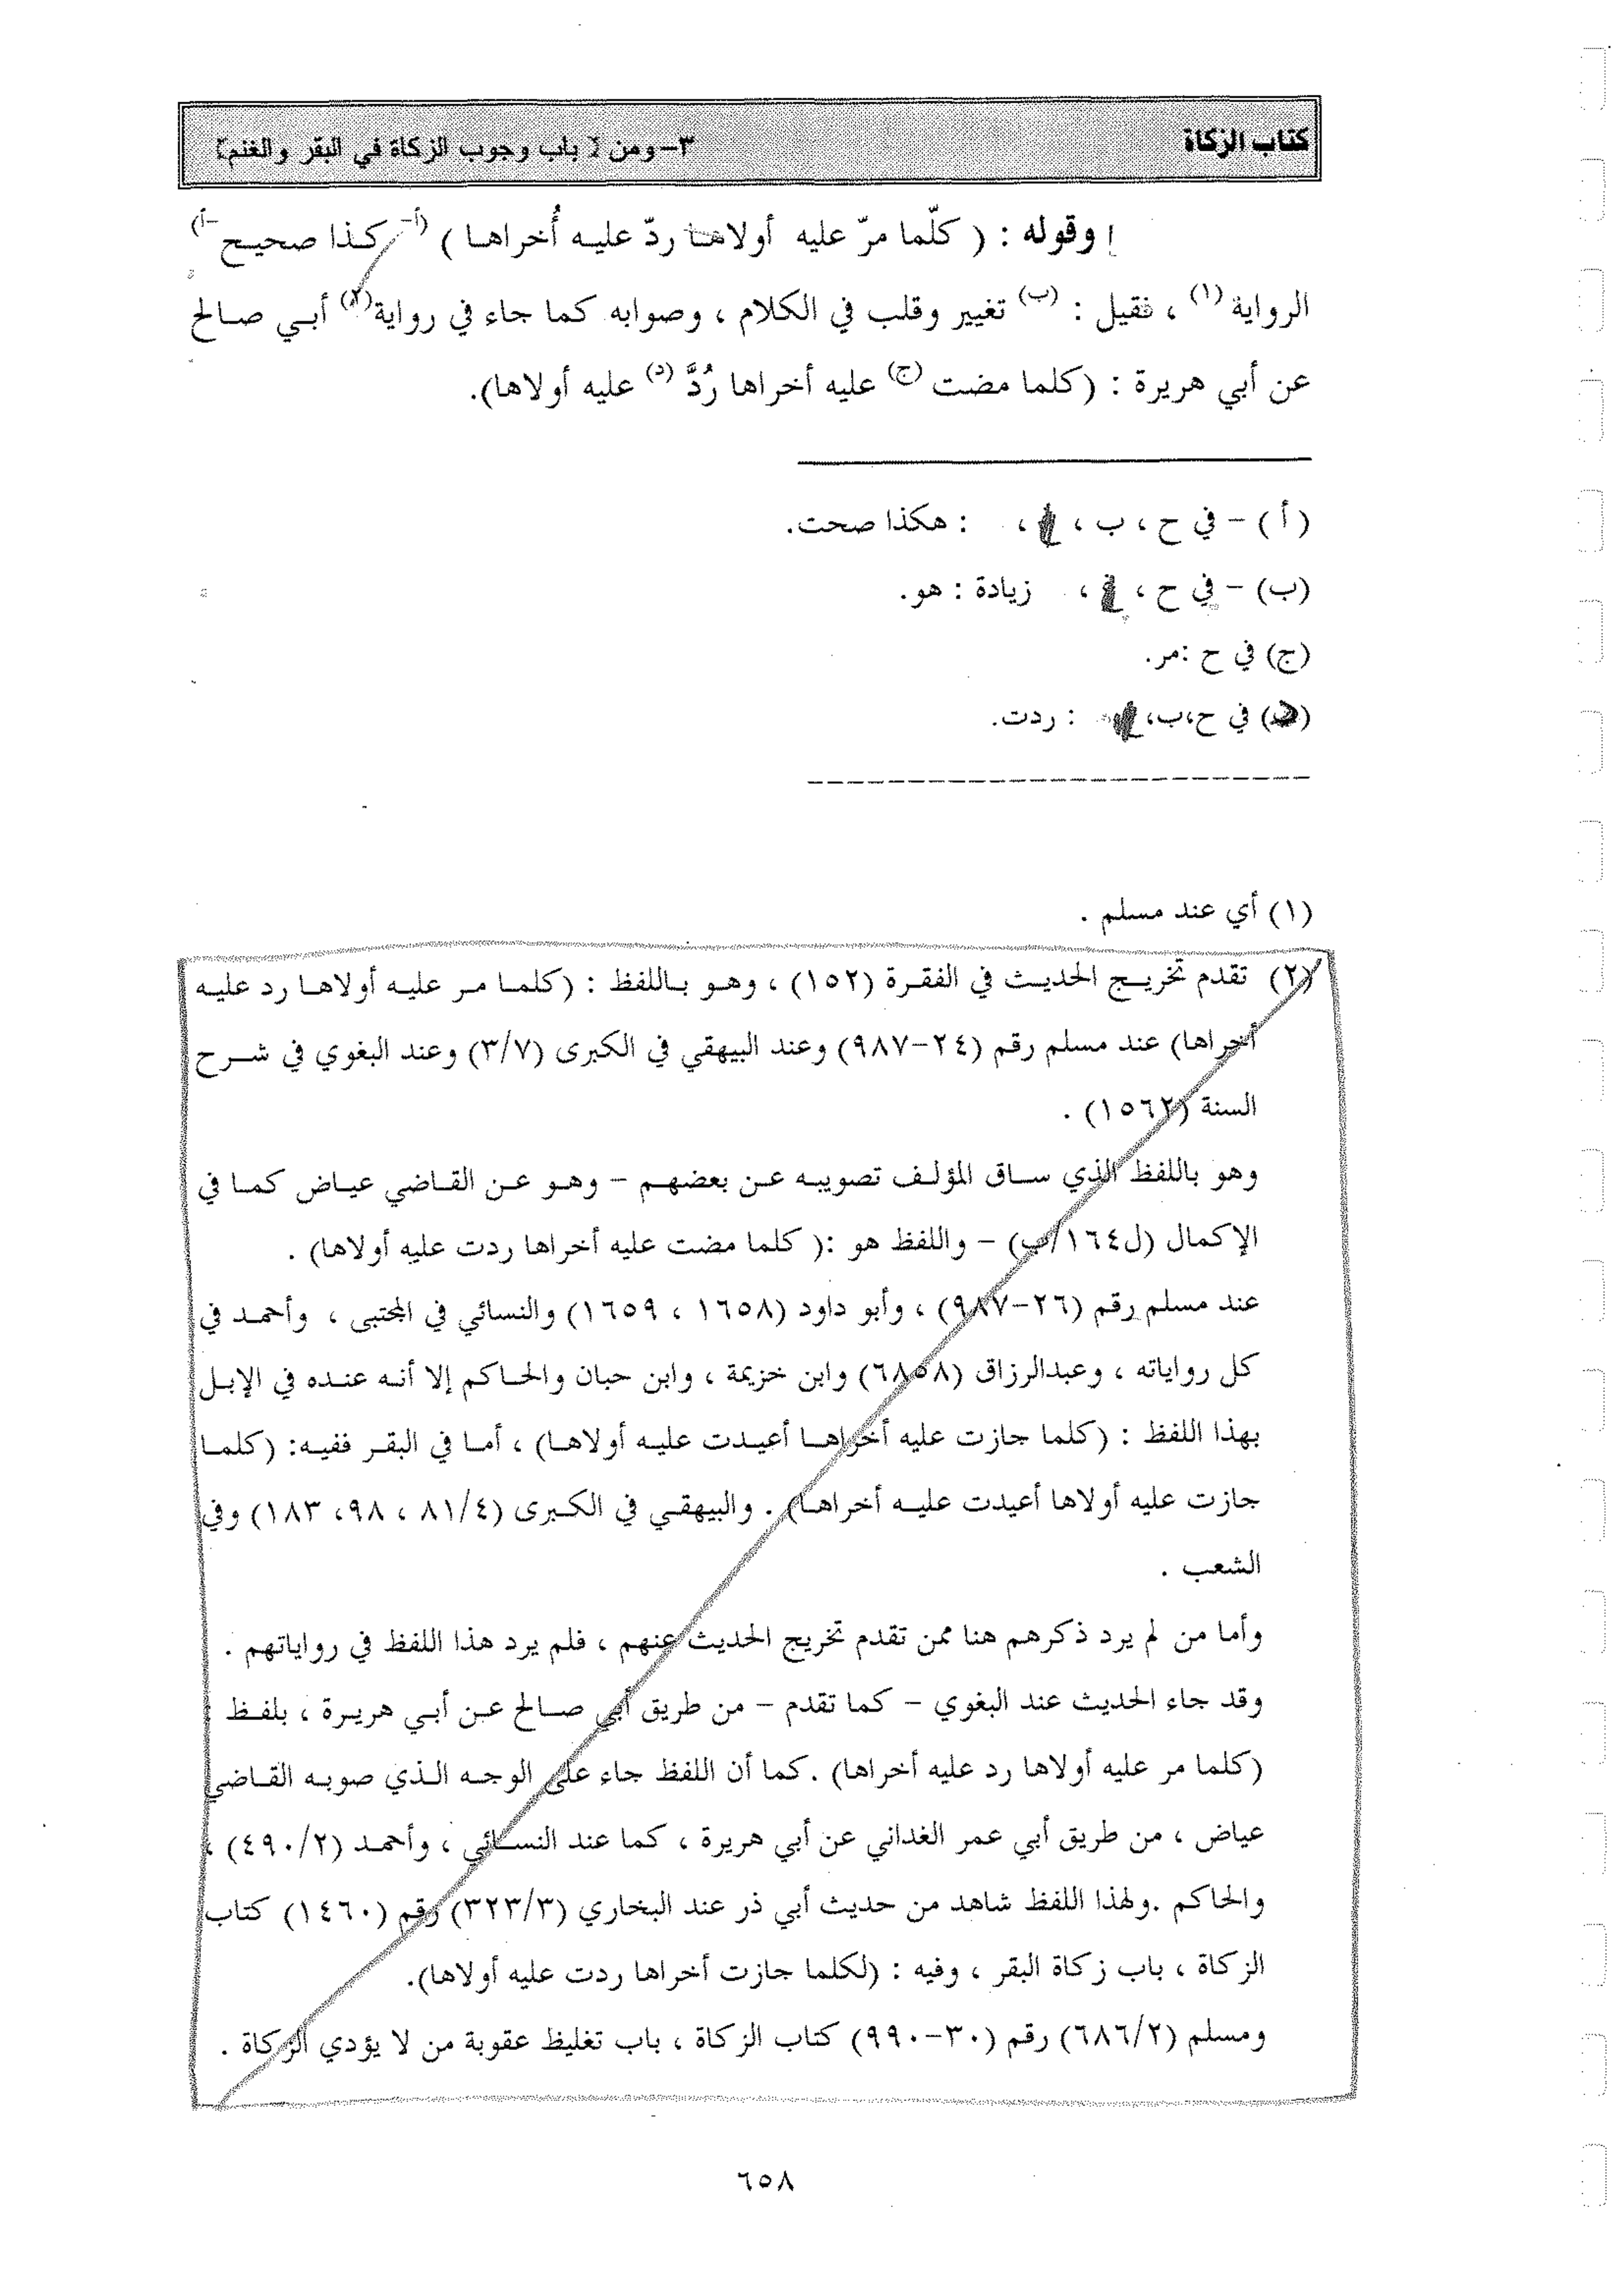 كتاب الزكاة ٣-ومن [ باب وجوب الزكاة في البقر والغنم]
وقوله : ( كلّما مرّ عليه أولاهـا ردّ عليـه أُخراهـا ) (أ- كـذا صحيـح -أ)
الرواية (١) ، فقيل : (ب) تغيير وقلب في الكلام ، وصوابه كما جاء في رواية(٢) أبـي صـالح
عن أبي هريرة : (كلما مضت (ج) عليه أخراها رُدَّ (د) عليه أولاها).
(أ) – في ح ، ب ، ، : هكذا صحت.
(ب) – في ح ، ، زيادة : هو.
(ج) في ح :مر.
في ح،ب، : ردت.
(١) أي عند مسلم .
(٢) تقدم تخريـج الحديـث في الفقـرة (١٥٢) ، وهـو بـاللفظ : (كلمـا مـر عليـه أولاهـا رد عليـه
أخراها) عند مسلم رقم (٢٤-٩٨٧) وعند البيهقي في الكبرى (٣/٧) وعند البغوي في شـرح
السنة (١٥٦٢) .
وهو باللفظ الذي سـاق المؤلـف تصويبـه عـن بعضهـم – وهـو عـن القـاضي عيـاض كمـا في
الإكمال (ل١٦٤/ب) – واللفظ هو :( كلما مضت عليه أخراها ردت عليه أولاها) .
عند مسلم رقم (٢٦-٩٨٧) ، وأبو داود (١٦٥٨ ، ١٦٥٩) والنسائي في المجتبى ، وأحمـد في
كل رواياته ، وعبدالرزاق (٦٨٥٨) وابن خزيمة ، وابن حبان والحـاكم إلا أنـه عنـده في الإبـل
بهذا اللفظ : (كلما جازت عليه أخراهـا أعيـدت عليـه أولاهـا) ، أمـا في البقـر ففيـه: (كلمـا
جازت عليه أولاها أعيدت عليـه أخراهـا) . والبيهقـي في الكـبرى (٨١/٤ ، ٩٨، ١٨٣) وفي
الشعب .
وأما من لم يرد ذكرهم هنا ممن تقدم تخريج الحديث عنهم ، فلم يرد هذا اللفظ في رواياتهم .
وقد جاء الحديث عند البغوي – كما تقدم – من طريق أبي صـالح عـن أبـي هريـرة ، بلفـظ :
(كلما مر عليه أولاها رد عليه أخراها) .كما أن اللفظ جاء على الوجـه الـذي صوبـه القـاضي
عياض ، من طريق أبي عمر الغداني عن أبي هريرة ، كما عند النسـائي ، وأحمـد (٤٩٠/٢) ،
والحاكم .ولهذا اللفظ شاهد من حديث أبي ذر عند البخاري (٣٢٣/٣) رقم (١٤٦٠) كتاب
الزكاة ، باب زكاة البقر ، وفيه : (لكلما جازت أخراها ردت عليه أولاها).
ومسلم (٦٨٦/٢) رقم (٣٠-٩٩٠) كتاب الزكاة ، باب تغليظ عقوبة من لا يؤدي الزكاة .
٦٥٨